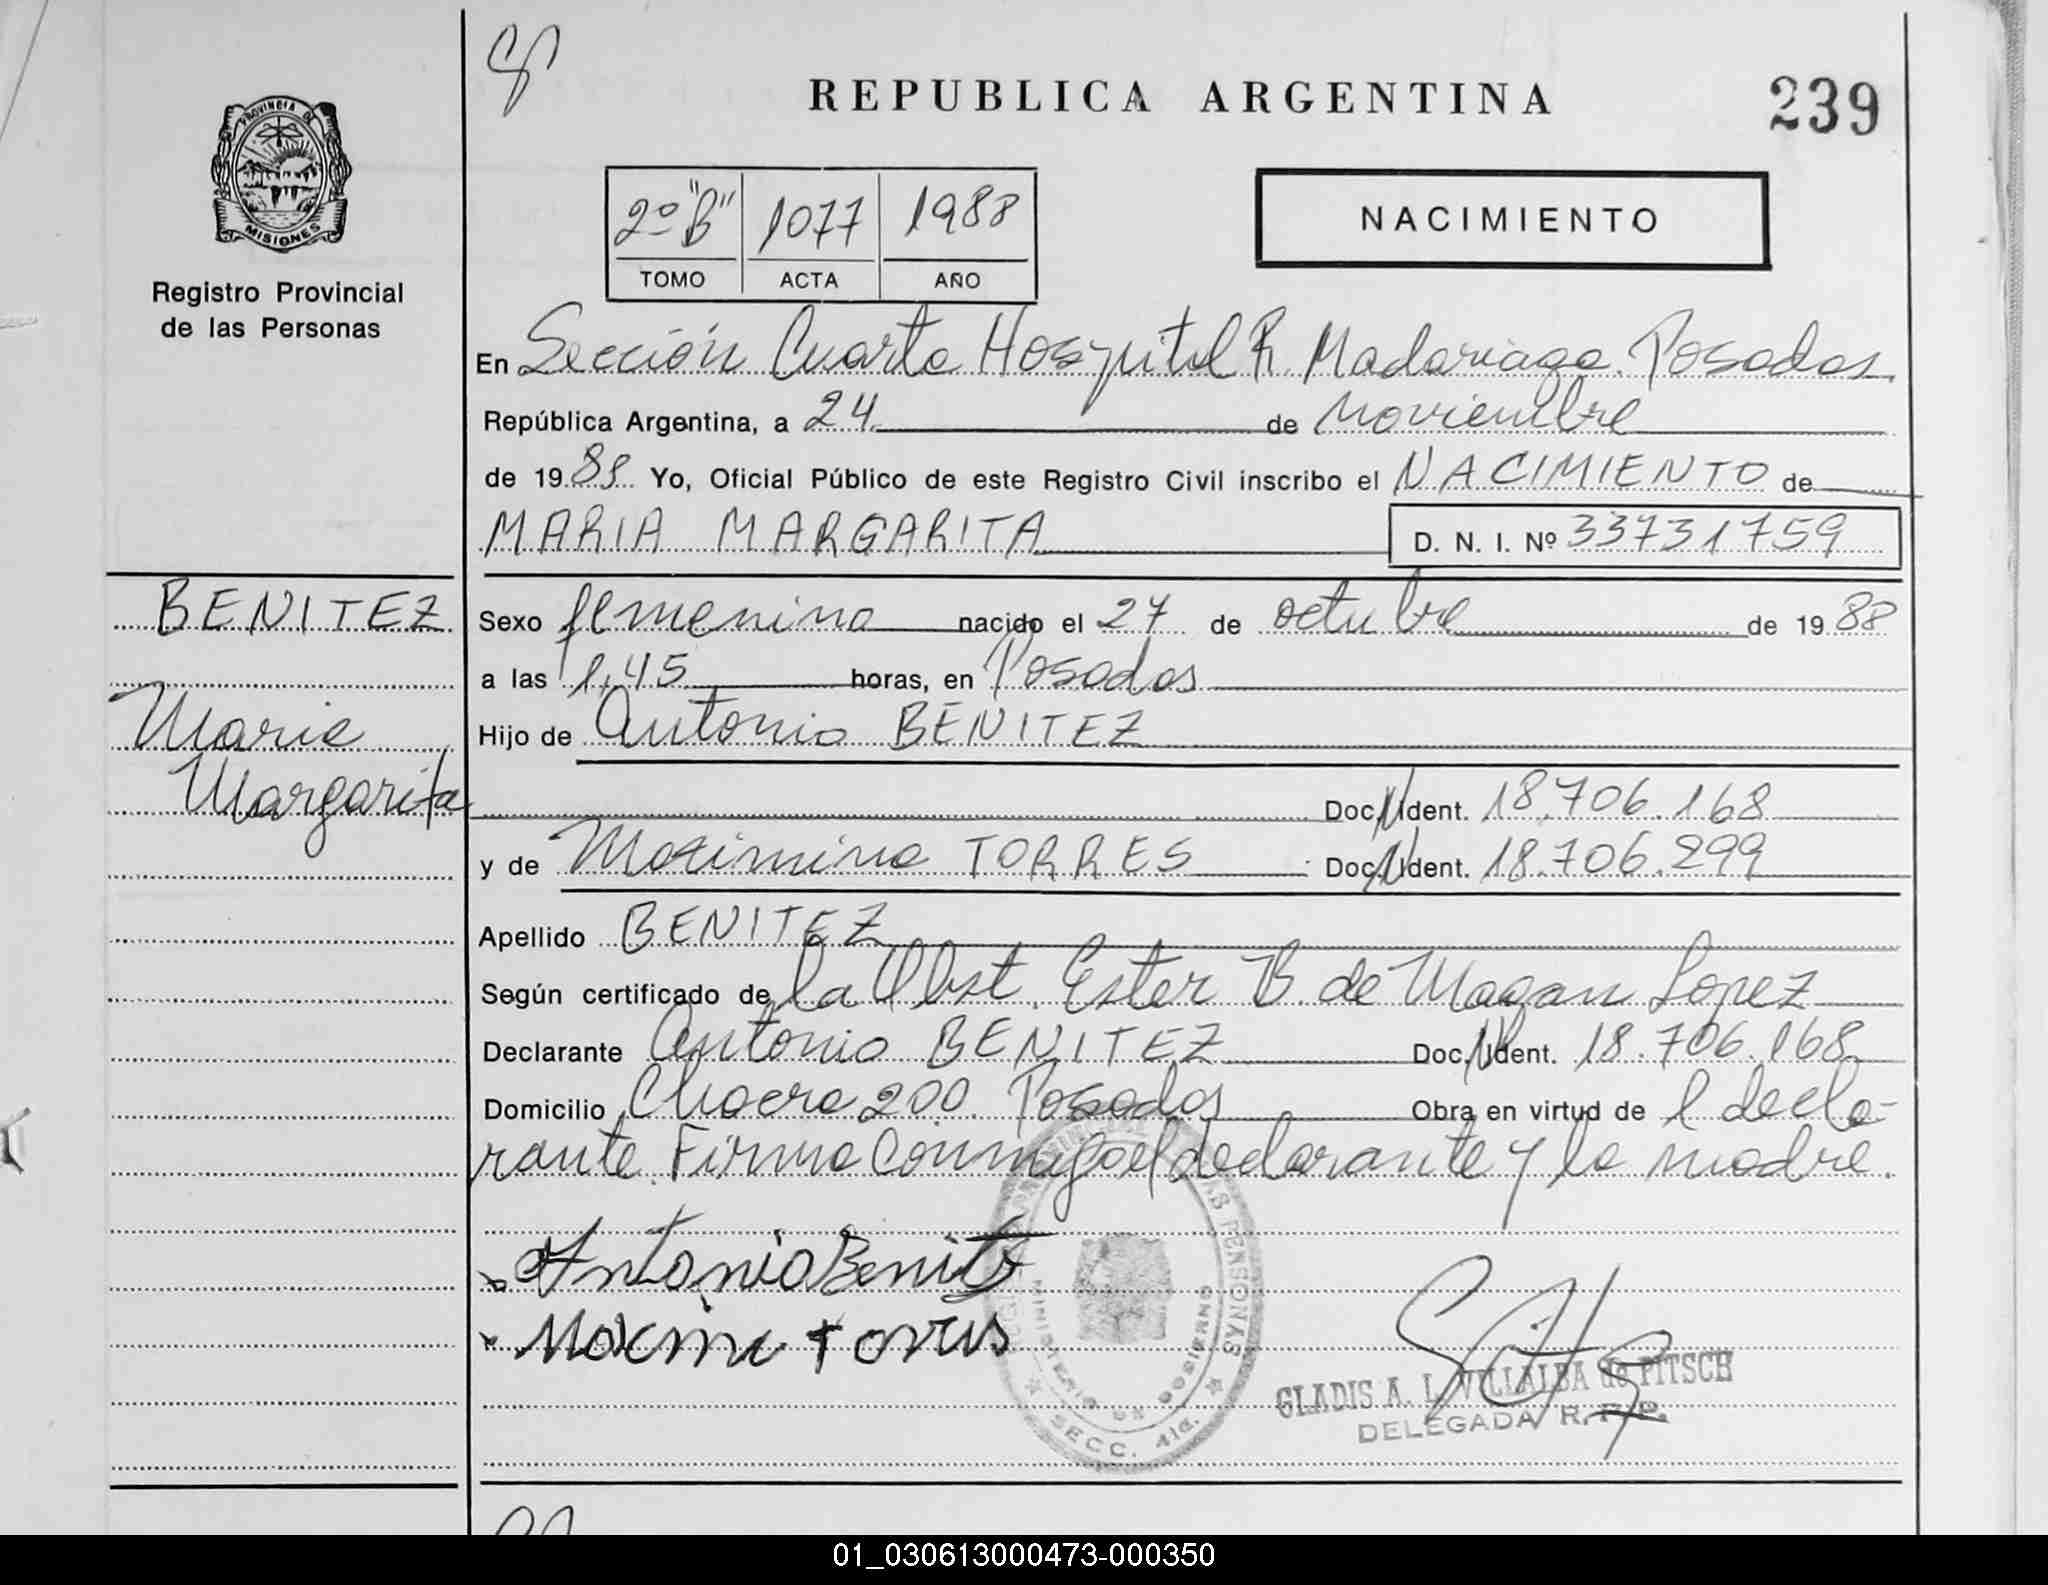 REPUBLICA ARGENTINA
239
PROVINCIA DE
MISIONES
Registro Provincial
de las Personas
2º "B" 1077 1988
TOMO ACTA AÑO
NACIMIENTO
En Sección Cuarta Hospital R. Madariaga. Posadas
República Argentina, a 24 de noviembre
de 1988 Yo, Oficial Público de este Registro Civil inscribo el NACIMIENTO de
MARIA MARGARITA D. N. I. Nº 33731759
BENITEZ
Maria
Margarita
Sexo femenino nacido el 27 de octubre de 19 88
a las 1,45 horas, en Posadas
Hijo de Antonio BENITEZ
Doc. N Ident. 18.706.168
y de Maximina TORRES Doc. N Ident. 18.706.299
Apellido BENITEZ
Según certificado de la Obst. Ester B. de Magan Lopez
Declarante Antonio BENITEZ Doc. N Ident. 18.706.168
Domicilio Chacra 200 Posadas Obra en virtud de l decla-
rante. Firma conmigo el declarante y la madre.
Antonio Benitez
Maximi torres
PERSONAS
MINISTERIO DE GOBIERNO
SECC. 4ta.
GLADIS A. L. VILLALBA de PITSCH
DELEGADA R. P. P.
01_030613000473-000350